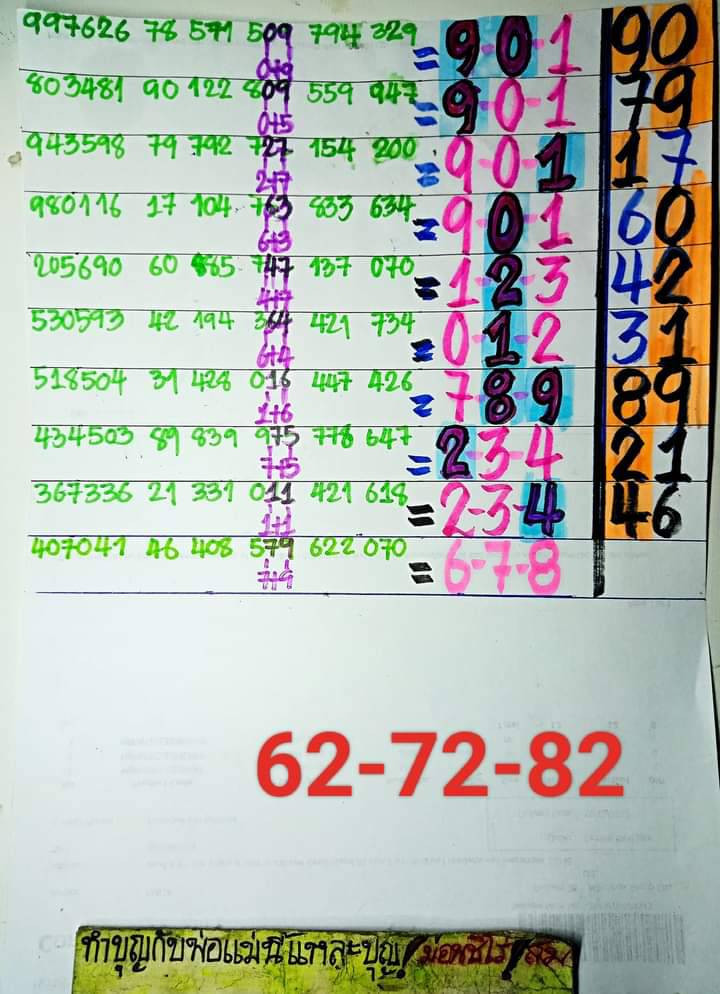 997626 78 571 509 794 329 = 9-0-1 90
0+9
803481 90 122 809 559 947 = 9-0-1 79
0+5
943598 79 792 727 154 200 = 9-0-1 17
2+7
980116 17 104 763 833 634 = 9-0-1 60
6+3
205690 60 885 747 137 070 = 1-2-3 42
4+7
530593 42 194 364 421 734 = 0-1-2 31
6+4
518504 31 428 016 447 426 = 7-8-9 89
1+6
434503 89 839 975 778 647 = 2-3-4 21
7+5
367336 21 331 011 421 618 = 2-3-4 46
1+1
407041 46 408 579 622 070 = 6-7-8
7+9
62-72-82
ทำบุญกับพ่อแม่นี่แหละบุญ/